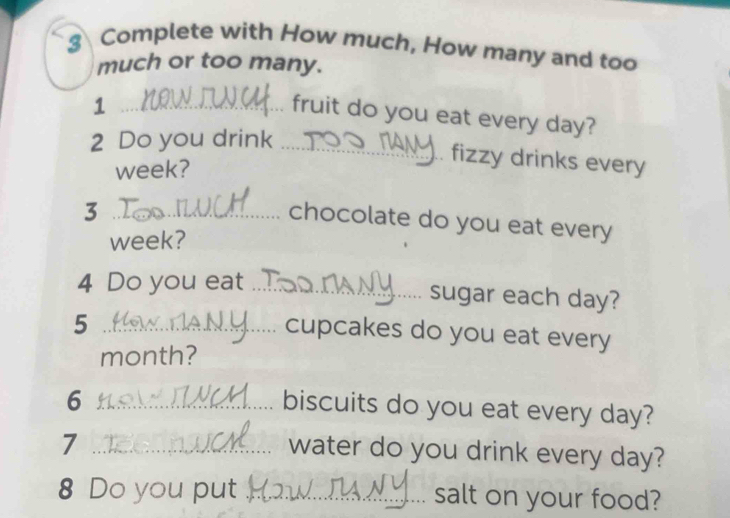 3 Complete with How much, How many and too
much or too many.
1 HOW MUCH fruit do you eat every day?
2 Do you drink TOO MANY fizzy drinks every
week?
3 Too MUCH chocolate do you eat every
week?
4 Do you eat Too MANY sugar each day?
5 How MANY cupcakes do you eat every
month?
6 HOW MUCH biscuits do you eat every day?
7 Too MUCH water do you drink every day?
8 Do you put How MANY salt on your food?